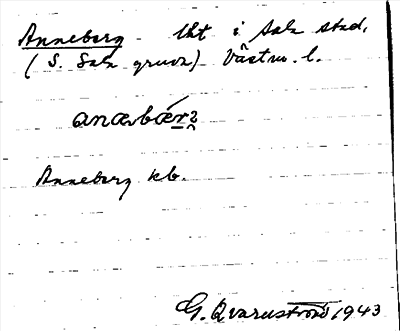 Anneberg - lht i Sala stad,
(S. Sala gruva) Västm. l.
anæbǽrꝫ
Anneberg kb.
G. Qvarnström 1943